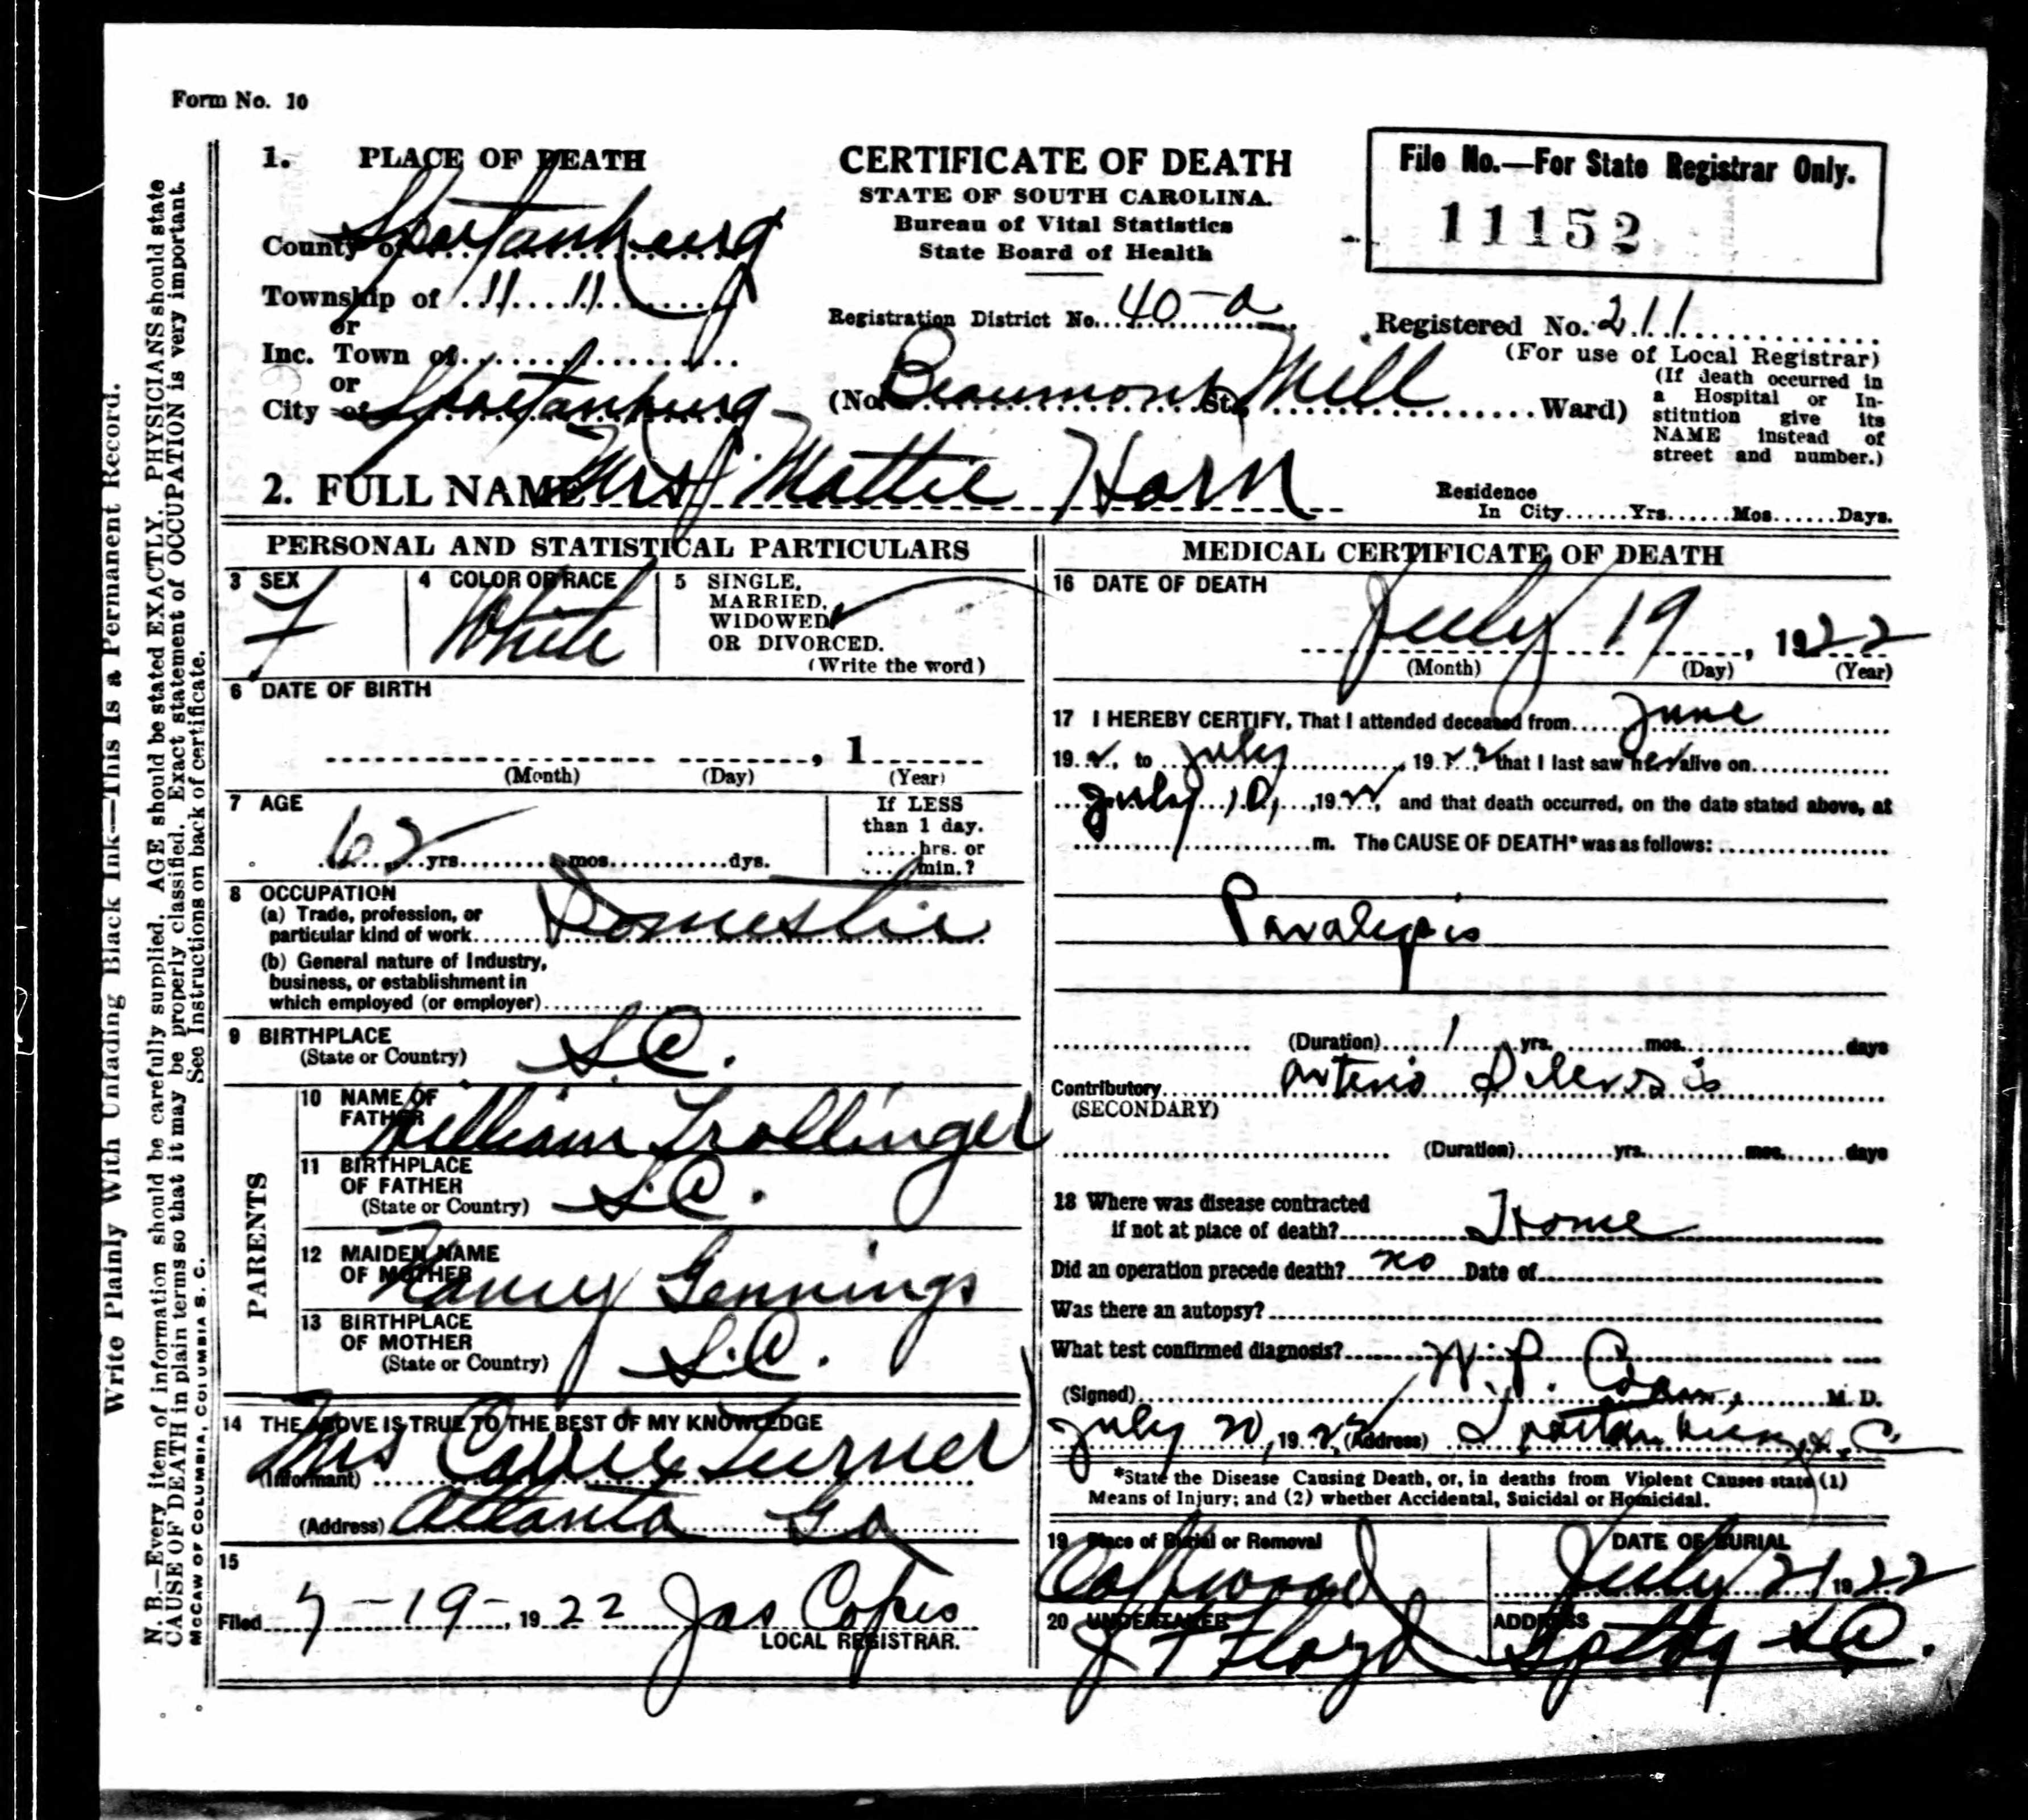 Form No. 10
1. PLACE OF DEATH
County of Spartanburg
Township of " "
or
Inc. Town of
or
City of Spartanburg
CERTIFICATE OF DEATH
STATE OF SOUTH CAROLINA.
Bureau of Vital Statistics
State Board of Health
Registration District No. 40-a
(No. Beaumont St. Mill Ward)
File No.—For State Registrar Only.
11152
Registered No. 211
(For use of Local Registrar)
(If death occurred in
a Hospital or In-
stitution give its
NAME instead of
street and number.)
2. FULL NAME Mrs Mattie Horn
Residence
In City......Yrs......Mos......Days.
PERSONAL AND STATISTICAL PARTICULARS
3 SEX
F
4 COLOR OR RACE
White
5 SINGLE,
MARRIED,
WIDOWED ✓
OR DIVORCED.
(Write the word)
6 DATE OF BIRTH
, 1
(Month) (Day) (Year)
7 AGE
62 yrs. mos. dys.
If LESS
than 1 day.
hrs. or
min.?
8 OCCUPATION
(a) Trade, profession, or
particular kind of work Domestic
(b) General nature of Industry,
business, or establishment in
which employed (or employer)
9 BIRTHPLACE
(State or Country) S.C.
PARENTS
10 NAME OF
FATHER William Trollinger
11 BIRTHPLACE
OF FATHER
(State or Country) S.C.
12 MAIDEN NAME
OF MOTHER Nancy Gennings
13 BIRTHPLACE
OF MOTHER
(State or Country) S.C.
14 THE ABOVE IS TRUE TO THE BEST OF MY KNOWLEDGE
(Informant) Mrs Carrie Turner
(Address) Atlanta Ga
15
Filed 7-19-, 1922 Jas Copes
LOCAL REGISTRAR.
MEDICAL CERTIFICATE OF DEATH
16 DATE OF DEATH
July 19, 1922
(Month) (Day) (Year)
17 I HEREBY CERTIFY, That I attended deceased from June
19 , to July , 1922, that I last saw her alive on
July 10, 1922, and that death occurred, on the date stated above, at
m. The CAUSE OF DEATH* was as follows:
Paralysis
(Duration) 1 yrs. mos. days
Contributory arterio
(SECONDARY)
(Duration) yrs. mos. days
18 Where was disease contracted
if not at place of death? Home
Did an operation precede death? no Date of
Was there an autopsy?
What test confirmed diagnosis?
(Signed) W. P. M. D.
July 20, 192 (Address) Spartanburg, S.C
*State the Disease Causing Death, or, in deaths from Violent Causes state (1)
Means of Injury; and (2) whether Accidental, Suicidal or Homicidal.
19 Place of Burial or Removal
Oakwood
DATE OF BURIAL
July 21 1922
20 UNDERTAKER
J F Floyd
ADDRESS
Sptbg S.C.
Write Plainly With Unfading Black Ink—This Is a Permanent Record.
N. B.—Every item of information should be carefully supplied. AGE should be stated EXACTLY. PHYSICIANS should state
CAUSE OF DEATH in plain terms so that it may be properly classified. Exact statement of OCCUPATION is very important.
See Instructions on back of certificate.
McCAW OF COLUMBIA, COLUMBIA S. C.